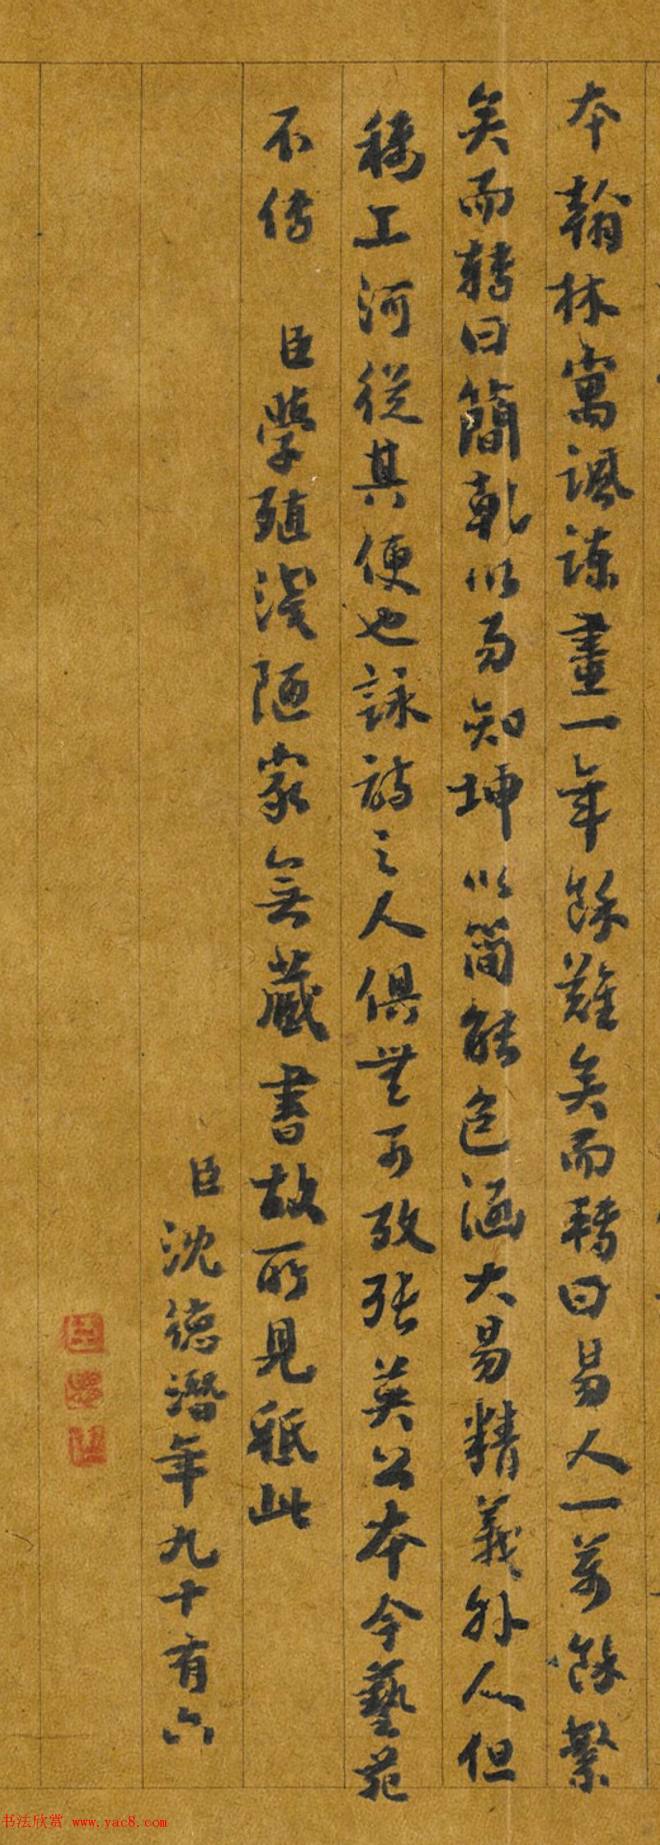 本翰林寓諷諫畫一年餘難矣而轉曰易人一万餘繁
矣而轉曰簡乾以易知坤以簡能包涵大易精義外人但
稱工河從其便也詠詩之人俱無可攷張英公本今藝苑
不傳 臣學殖淺陋家無藏書故所見秪此
臣沈德潛年九十有六
书法欣赏 www.yac8.com